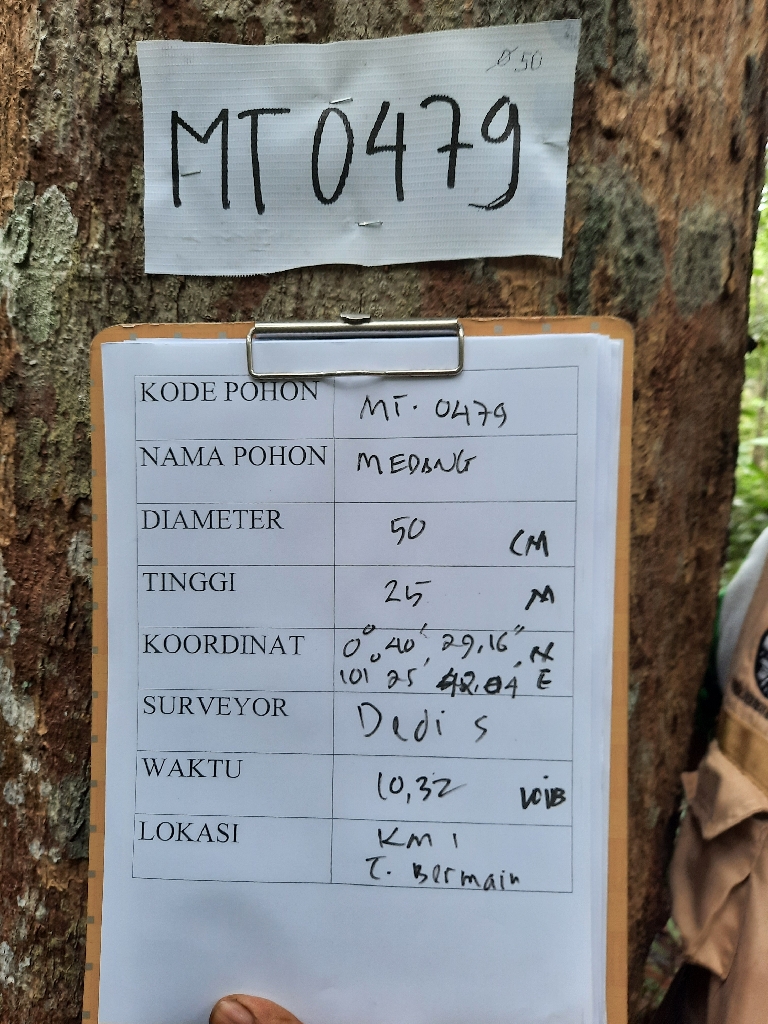 Ø 50
MT 0479
KODE POHON MT. 0479
NAMA POHON MEDANG
DIAMETER 50 CM
TINGGI 25 M
KOORDINAT 0° 40' 29,16" N
101° 25' 42,04" E
SURVEYOR Dedi S
WAKTU 10,32 WIB
LOKASI KM 1
T. Bermain